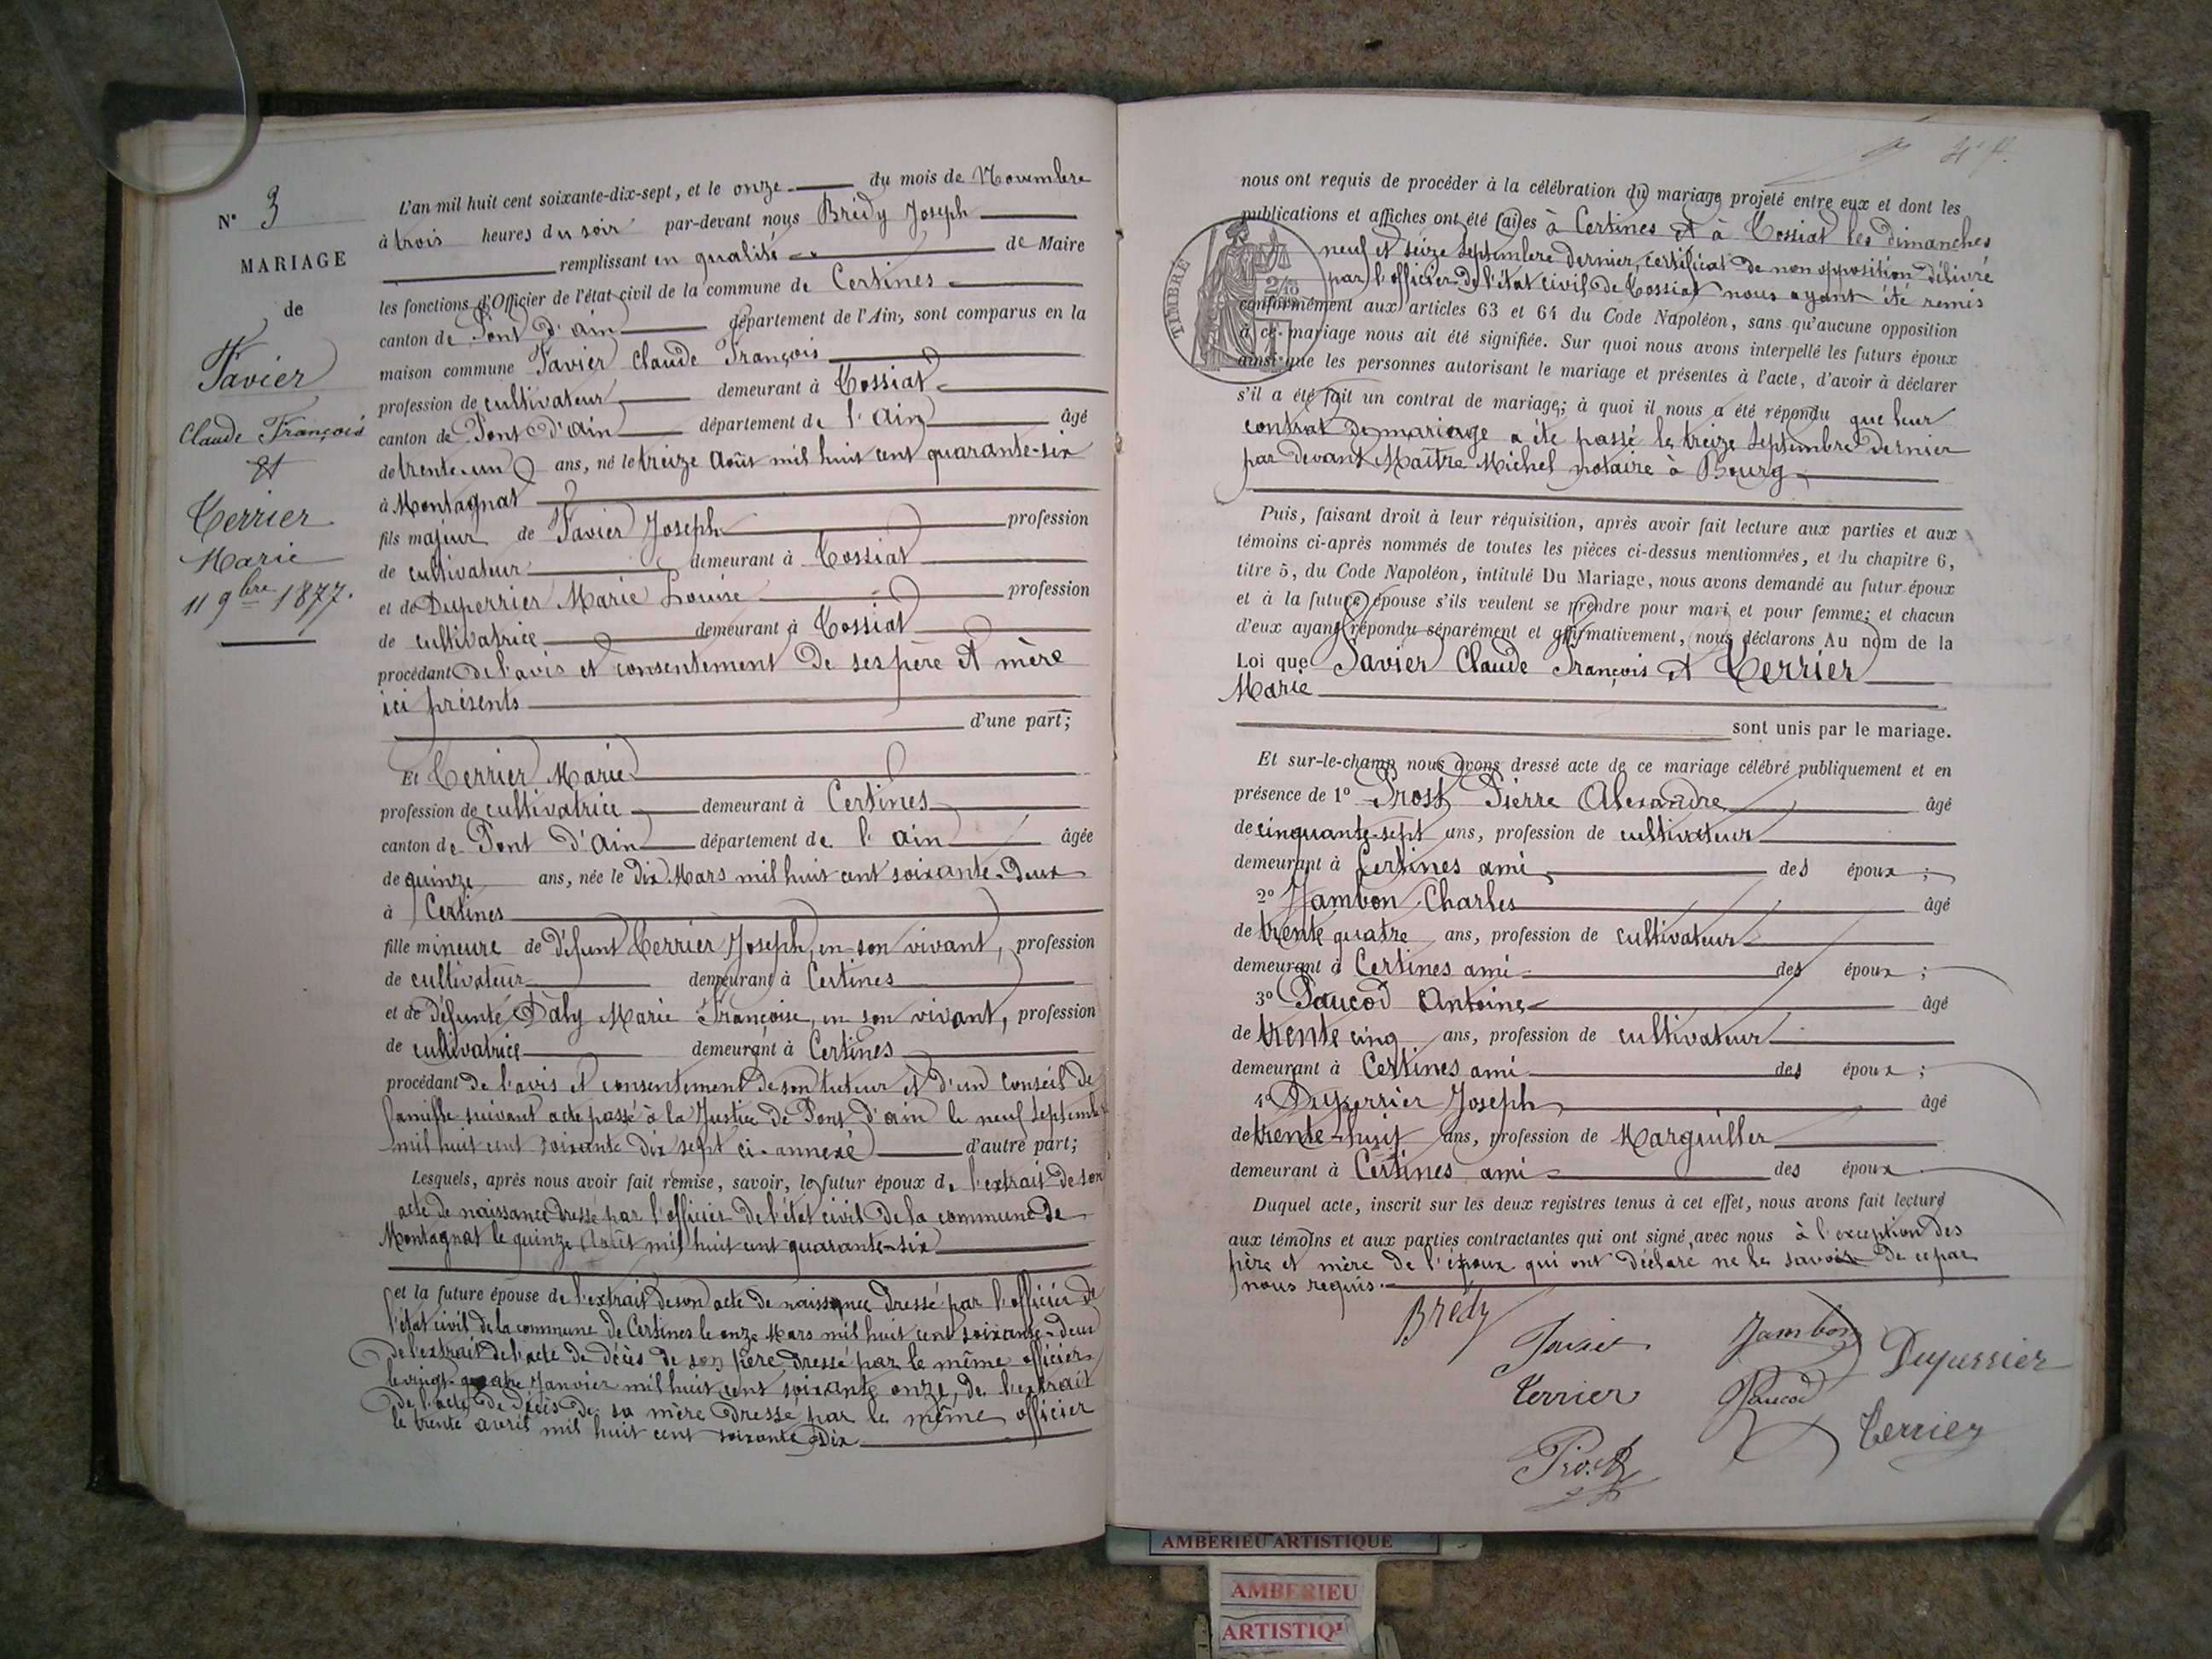 N° 3
MARIAGE
de
Favier
Claude François
et
Terrier
Marie
11 9bre 1877.
L'an mil huit cent soixante-dix-sept, et le onze du mois de Novembre
à trois heures du soir par-devant nous Brédy Joseph
remplissant en qualité de Maire
les fonctions d'Officier de l'état civil de la commune de Certines
canton de Pont d'Ain département de l'Ain, sont comparus en la
maison commune Favier Claude François
profession de cultivateur demeurant à Tossiat
canton de Pont d'Ain département de l'Ain âgé
de trente-un ans, né le treize Août mil huit cent quarante-six
à Montagnat
fils majeur de Favier Joseph profession
de cultivateur demeurant à Tossiat
et de Duperrier Marie Louise profession
de cultivatrice demeurant à Tossiat
procédant de l'avis et consentement de ses père et mère
ici présents
d'une part;
Et Terrier Marie
profession de cultivatrice demeurant à Certines
canton de Pont d'Ain département de l'Ain âgée
de quinze ans, née le Dix Mars mil huit cent soixante-deux
à Certines
fille mineure de défunt Terrier Joseph, en son vivant, profession
de cultivateur demeurant à Certines
et de défunte Daly Marie Françoise, en son vivant, profession
de cultivatrice demeurant à Certines
procédant de l'avis et consentement de son tuteur et d'un conseil de
famille suivant acte passé à la Justice de Pont d'ain le neuf Septembre
mil huit cent soixante dix sept ci-annexé d'autre part;
Lesquels, après nous avoir fait remise, savoir, le futur époux de l'extrait de son
acte de naissance dressé par l'officier de l'état civil de la commune de
Montagnat le quinze Août mil huit cent quarante-six
et la future épouse de l'extrait de son acte de naissance dressé par l'officier de
l'état civil de la commune de Certines le onze Mars mil huit cent soixante-deux
de l'extrait de l'acte de décès de son père dressé par le même officier
le vingt-quatre Janvier mil huit cent soixante onze, de l'extrait
de l'acte de décès de sa mère dressé par le même officier
le trente avril mil huit cent soixante Dix
nous ont requis de procéder à la célébration du mariage projeté entre eux et dont les
publications et affiches ont été faites à Certines et à Tossiat les dimanches
neuf et seize Septembre dernier, certificat de non opposition délivré
par l'officier de l'état civil de Tossiat nous ayant été remis
conformément aux articles 63 et 64 du Code Napoléon, sans qu'aucune opposition
à ce mariage nous ait été signifiée. Sur quoi nous avons interpellé les futurs époux
ainsi que les personnes autorisant le mariage et présentes à l'acte, d'avoir à déclarer
s'il a été fait un contrat de mariage; à quoi il nous a été répondu que leur
contrat de mariage a été passé le treize Septembre dernier
par devant Maître Michel notaire à Bourg
TIMBRE
Puis, faisant droit à leur réquisition, après avoir fait lecture aux parties et aux
témoins ci-après nommés de toutes les pièces ci-dessus mentionnées, et du chapitre 6,
titre 5, du Code Napoléon, intitulé Du Mariage, nous avons demandé au futur époux
et à la future épouse s'ils veulent se prendre pour mari et pour femme; et chacun
d'eux ayant répondu séparément et affirmativement, nous déclarons Au nom de la
Loi que Favier Claude François et Terrier
Marie
sont unis par le mariage.
Et sur-le-champ nous avons dressé acte de ce mariage célébré publiquement et en
présence de 1° Prost Pierre Alexandre âgé
de cinquante-sept ans, profession de cultivateur
demeurant à Certines ami des époux ;
2° Jambon Charles âgé
de trente quatre ans, profession de cultivateur
demeurant à Certines ami des époux ;
3° Paucod Antoine âgé
de trente cinq ans, profession de cultivateur
demeurant à Certines ami des époux ;
4° Duperrier Joseph âgé
de trente-huit ans, profession de Marguiller
demeurant à Certines ami des époux
Duquel acte, inscrit sur les deux registres tenus à cet effet, nous avons fait lecture
aux témoins et aux parties contractantes qui ont signé avec nous à l'exception des
père et mère de l'époux qui ont déclaré ne le savoir de ce par
nous requis.
Brédy
Jambon
Duperrier
Terrier
Paucod
Terrier
Prost
AMBERIEU ARTISTIQUE
AMBERIEU
ARTISTIQU